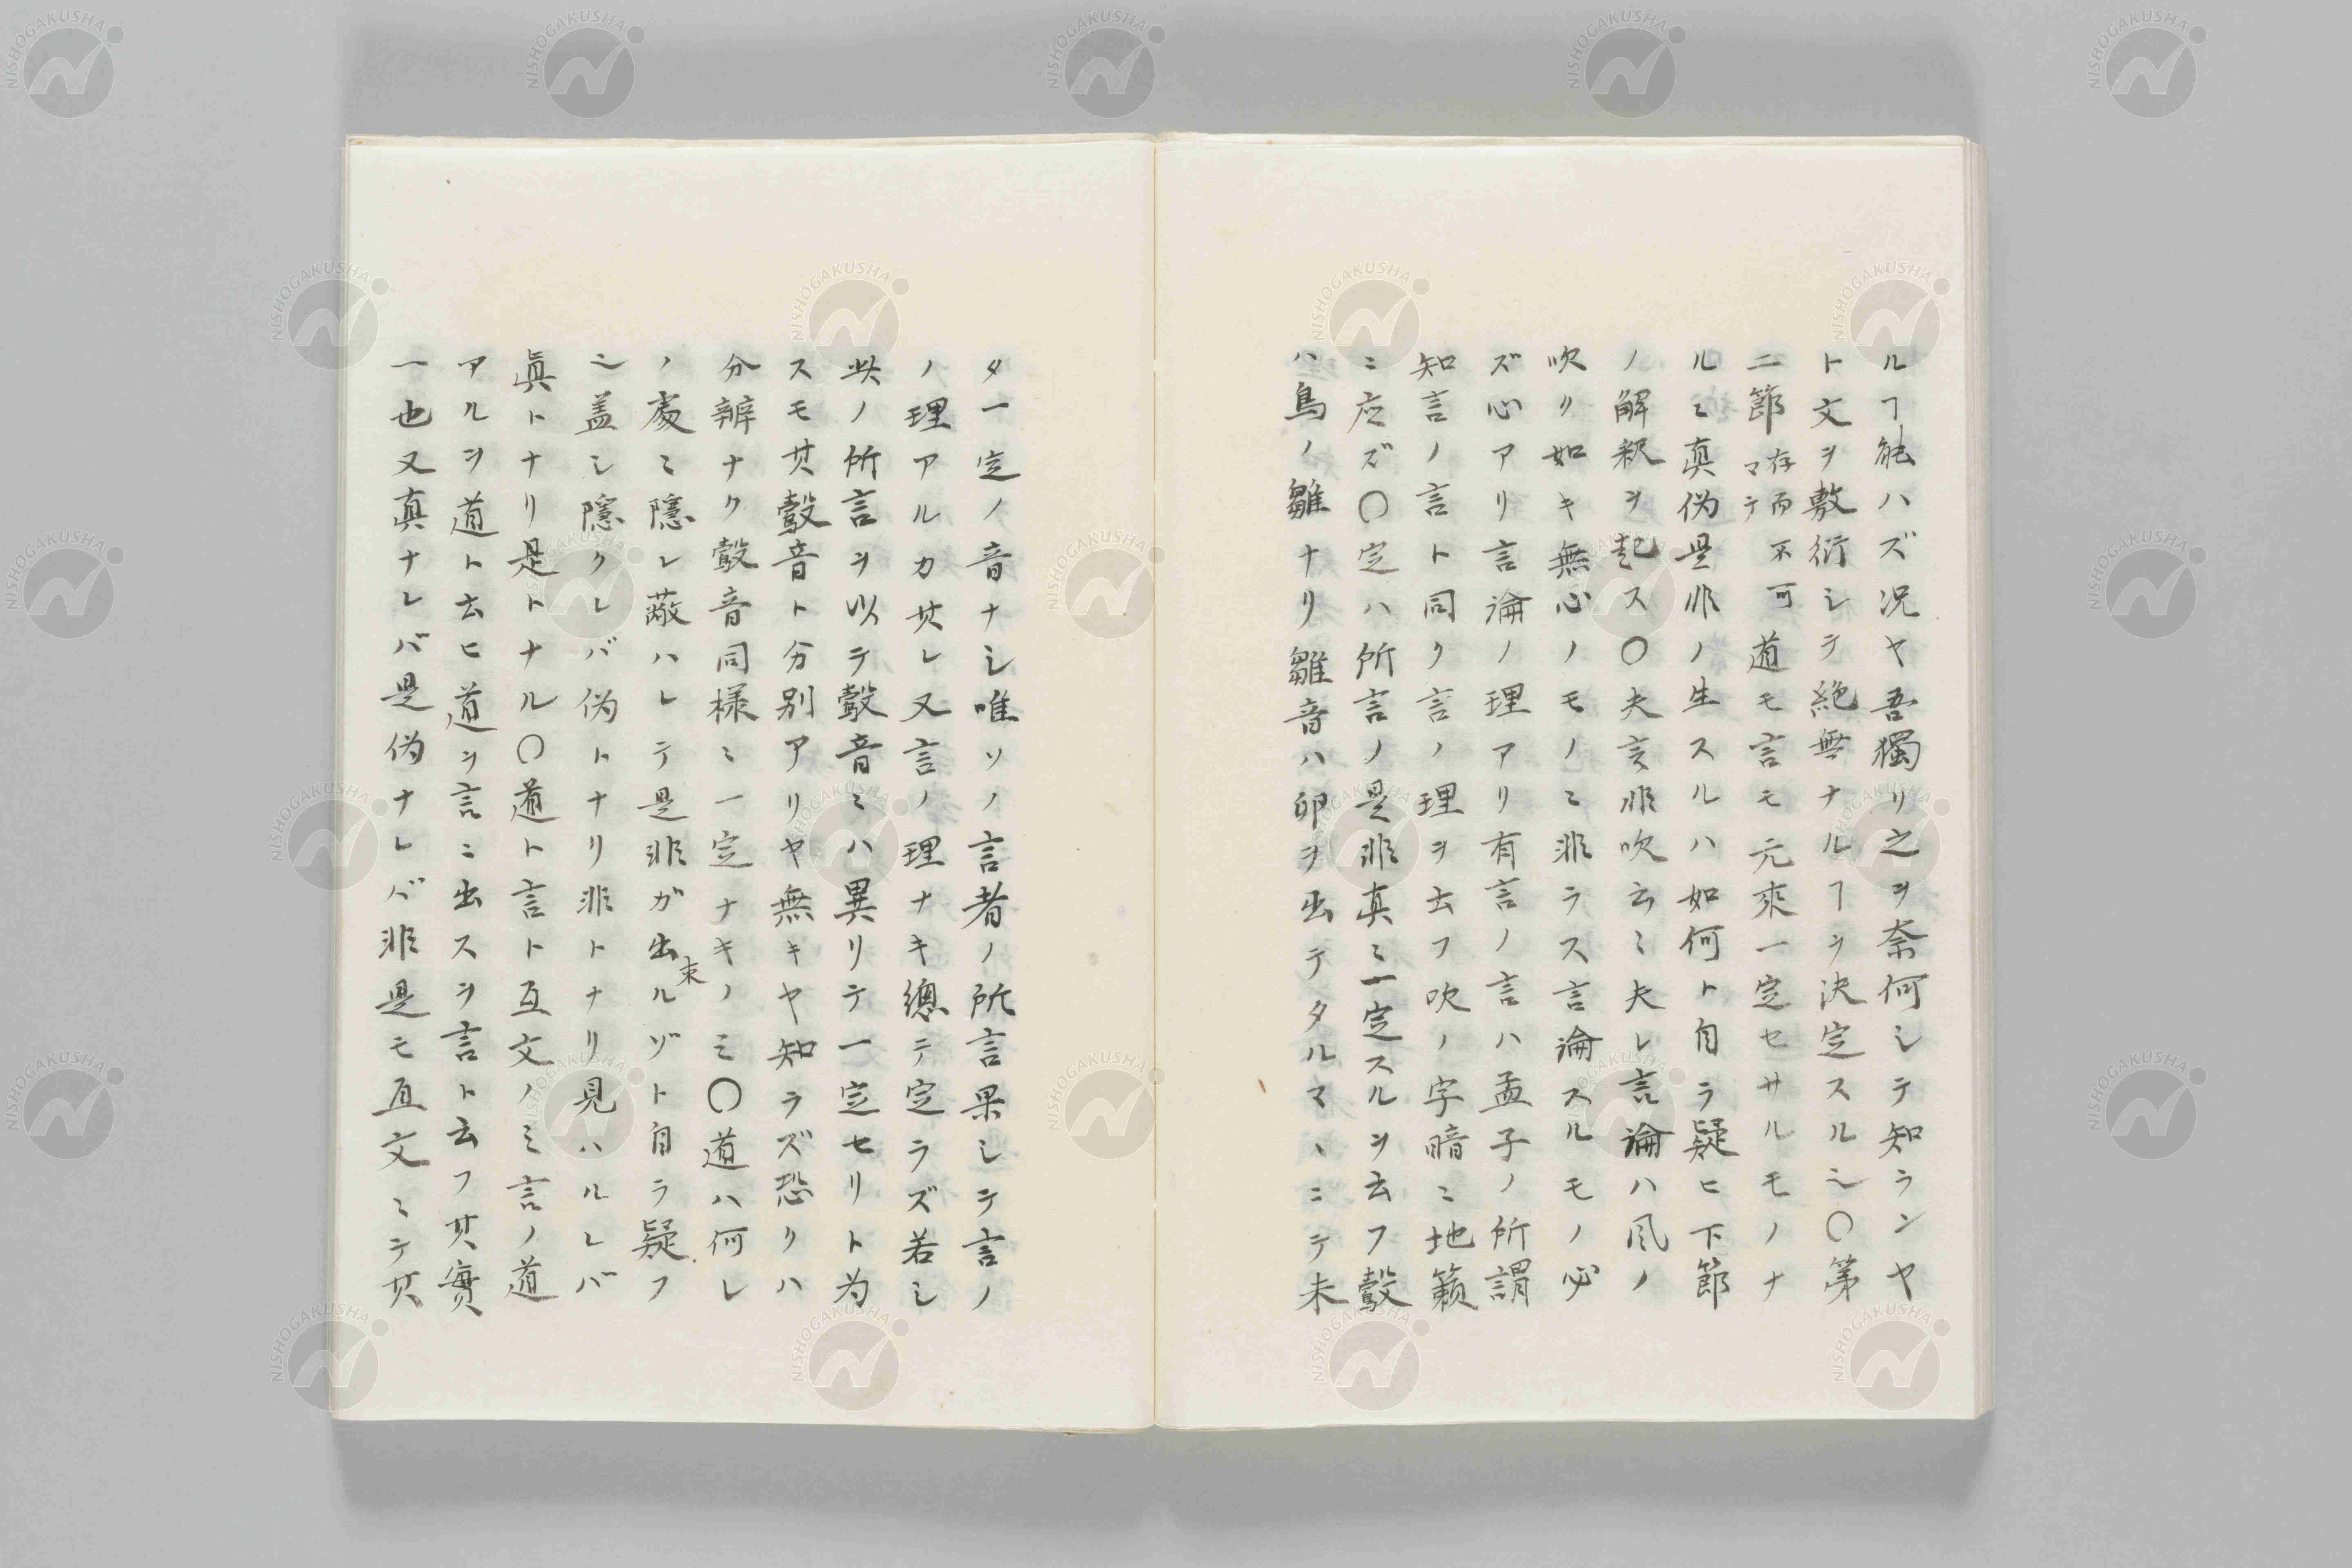 ルヿ能ハズ况ヤ吾獨リ之ヲ奈何シテ知ランヤ
ト文ヲ敷衍シテ絶無ナルヿヲ決定スル也〇第
二節存而不可マテ道モ言モ元來一定セサルモノナ
ルニ真偽是非ノ生スルハ如何ト自ラ疑ヒ下節
ノ解釈ヲ起ス〇夫言非吹云ミ夫レ言論ハ風ノ
吹リ如キ無心ノモノニ非ラス言論スルモノ必
ズ心アリ言論ノ理アリ有言ノ言ハ孟子ノ所謂
知言ノ言ト同ク言ノ理ヲ云フ吹ノ字暗ニ地籟
ニ应ズ〇定ハ所言ノ是非真ニ一定スルヲ云フ鷇
ハ鳥ノ雛ナリ雛音ハ卵ヲ出テタルマヽニテ未
タ一定ノ音ナシ唯ソノ言者ノ所言果シテ言ノ
ノ理アルカ其レ又言ノ理ナキ總テ定ラズ若シ
其ノ所言ヲ以テ鷇音ニハ異リテ一定セリト為
スモ其鷇音ト分别アリヤ無キヤ知ラズ恐リハ
分辨ナク鷇音同様ニ一定ナキノミ〇道ハ何レ
ノ處ニ隱レ蔽ハレテ是非ガ出来ルゾト自ラ疑フ
也盖シ隱クレバ偽トナリ非トナリ見ハルレバ
眞トナリ是トナル〇道ト言ト互文ノミ言ノ道
アルヲ道ト云ヒ道ヲ言ニ出スヲ言ト云フ其實
一也又真ナレバ是偽ナレバ非是モ互文ミテ其
NISHOGAKUSHA